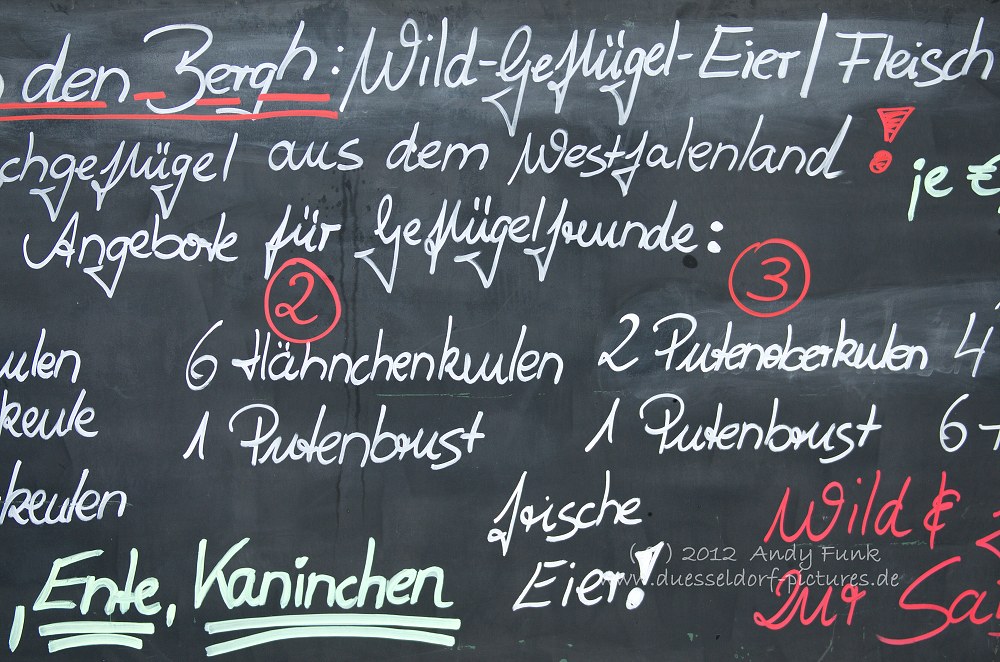 den Bergh: Wild-Geflügel-Eier/Fleisch
chgeflügel aus dem Westfalenland! je €
Angebote für Geflügelfreunde:
2 3
ulen 6 Hähnchenkeulen 2 Putenoberkeulen 4
keule 1 Putenbrust 1 Putenbrust 6
keulen frische Wild &
, Ente, Kaninchen Eier! Zur Sai
(c) 2012 Andy Funk
www.duesseldorf-pictures.de